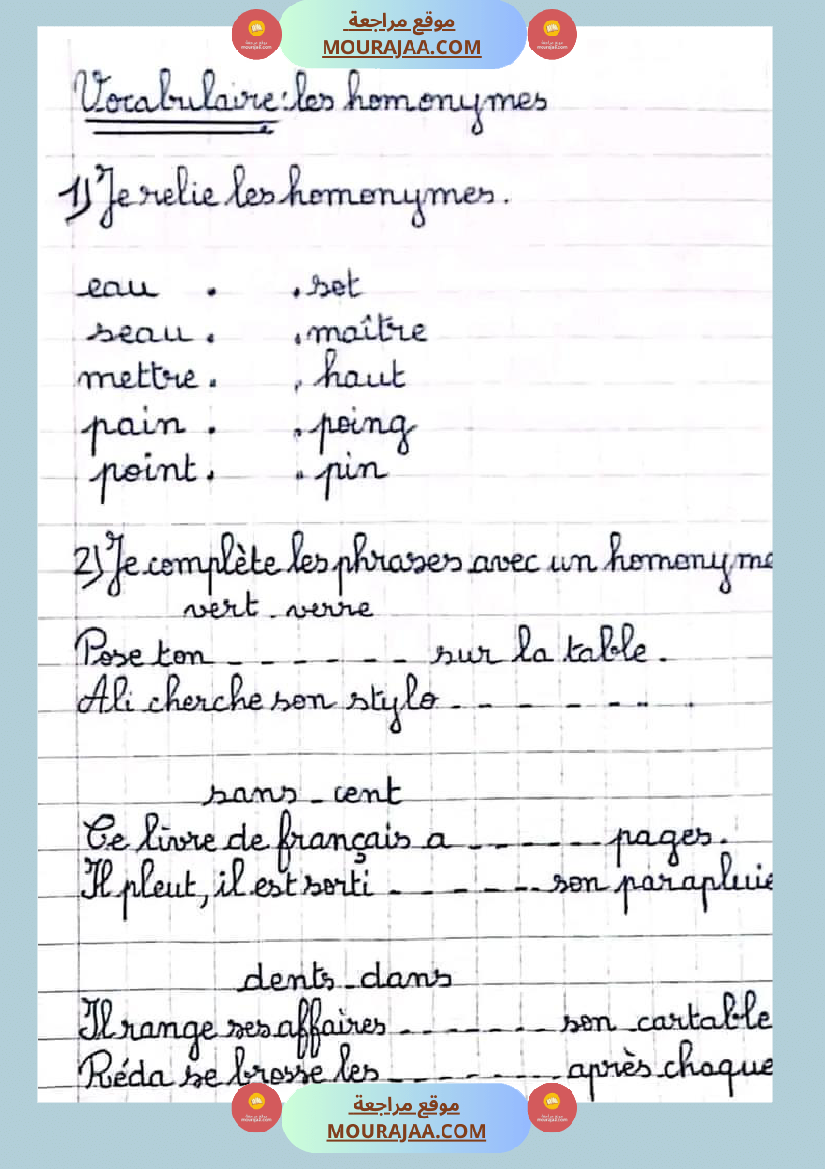 موقع مراجعة
MOURAJAA.COM
Vocabulaire: les homonymes
1) Je relie les homonymes.
eau . . sot
seau . . maître
mettre . . haut
pain . . poing
point . . pin
2) Je complète les phrases avec un homonyme
vert - verre
Pose ton - - - - - - - sur la table.
Ali cherche son stylo - - - - - - .
sans - cent
Ce livre de français a - - - - - - pages.
Il pleut, il est sorti - - - - - - son parapluie
dents - dans
Il range ses affaires - - - - - - - son cartable
Réda se brosse les - - - - - - - après chaque
موقع مراجعة
MOURAJAA.COM